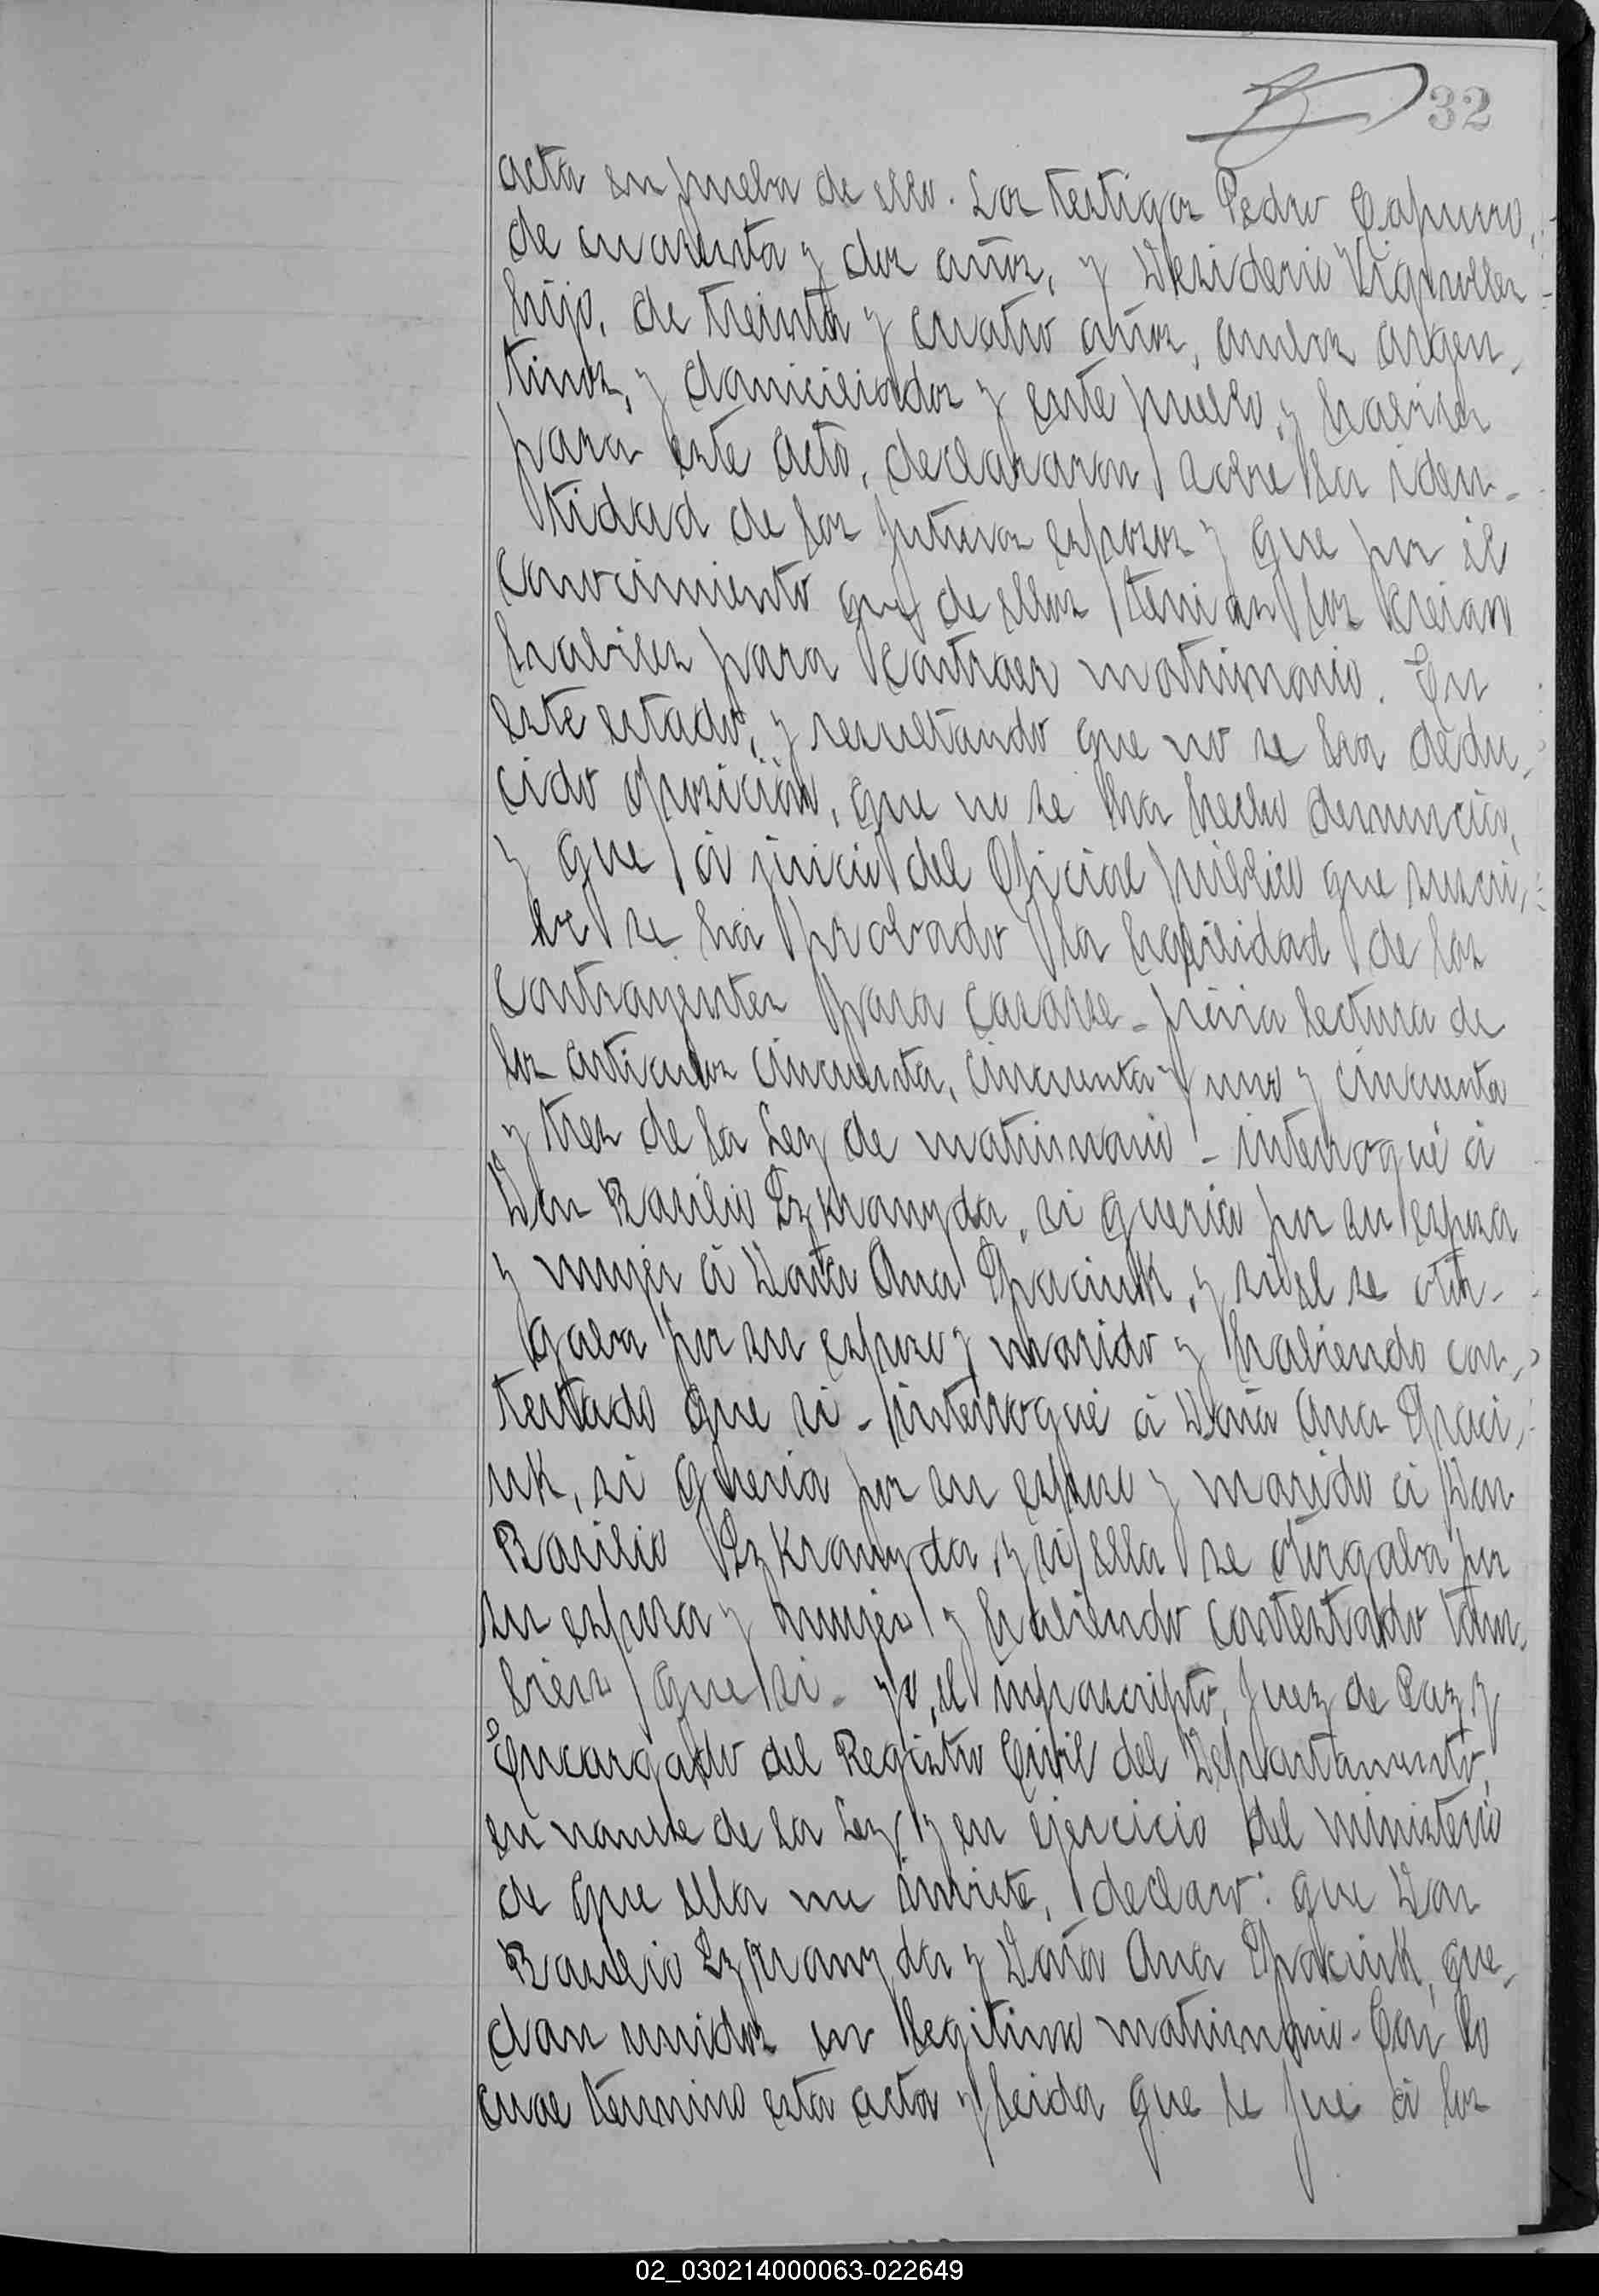 32
acta en prueba de ello. Los testigos Pedro Capurro,
de cuarenta y dos años, y Desiderio Vignolles
hijo, de treinta y cuatro años, ambos argen-
tinos, y domiciliados y este pueblo, y habiles
para este acto, declararon sobre la iden-
tidad de los futuros esposos y que por el
conocimiento que de ellos tenian los creian
habiles para contraer matrimonio. En
este estado, y resultando que no se ha dedu-
cido oposición, que no se ha hecho denuncia,
y que á juicio del Oficial público que suscri-
be se ha probado la habilidad de los
contrayentes para casarse - prévia lectura de
los articulos cincuenta, cincuenta y uno y cincuenta
y tres de la Ley de matrimonio - interrogué á
Don Basilio Izkranyda, si queria por su esposa
y mujer á Doña Ana Opaciuk, y si el se otor-
gaba por su esposo y marido y habiendo con-
testado que si - interrogué á Doña Ana Opaci-
uk, si queria por su esposo y marido á Don
Basilio Izkranyda y si ella se otorgaba por
su esposa y mujer y habiendo contestado tam-
bien que si - yo, el infrascripto, Juez de Paz y
Encargado del Registro Civil del Departamento,
en nombre de la Ley y en ejercicio del ministerio
de que ella me inviste, declaro: que Don
Basilio Izkranyda y Doña Ana Opaciuk, que-
dan unidos en legitimo matrimonio - Con lo
cual terminó esta acta y leida que le fué á los
02_030214000063-022649